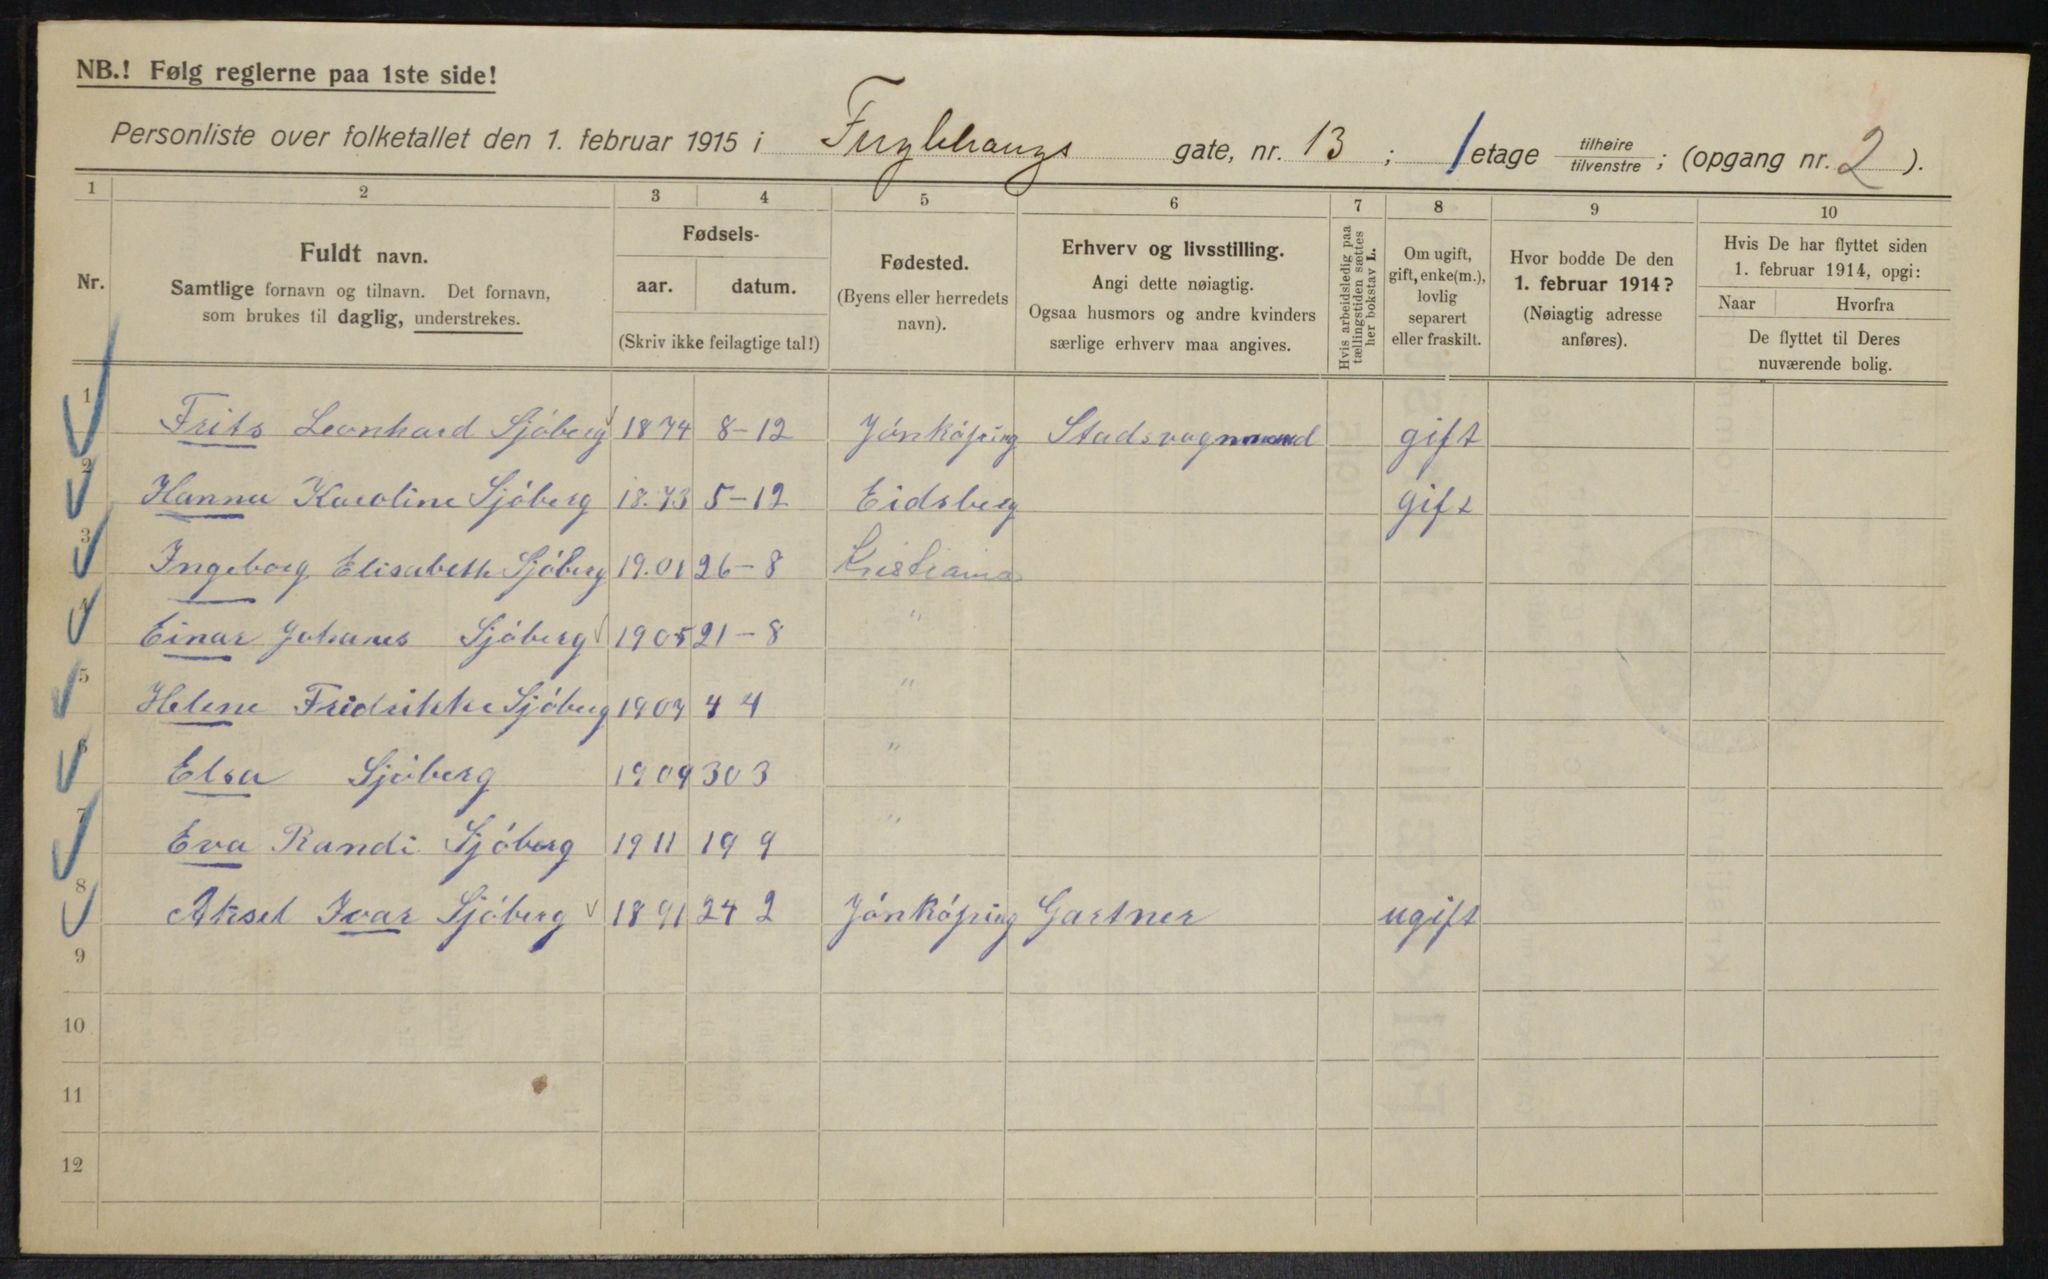 NB.! Følg reglerne paa 1ste side!
Personliste over folketallet den 1. februar 1915 i Fuglehaugs gate, nr. 13 ; 1 etage tilhøire tilvenstre ; (opgang nr. 2 ).
1 2 3 4 5 6 7 8 9 10
Nr.
Fuldt navn.
Samtlige fornavn og tilnavn. Det fornavn,
som brukes til daglig, understrekes.
Fødsels-
aar. datum.
(Skriv ikke feilagtige tal!)
Fødested.
(Byens eller herredets
navn).
Erhverv og livsstilling.
Angi dette nøiagtig.
Ogsaa husmors og andre kvinders
særlige erhverv maa angives.
Hvis arbeidsledig paa
tællingstiden sættes
her bokstav L.
Om ugift,
gift, enke(m.),
lovlig
separert
eller fraskilt.
Hvor bodde De den
1. februar 1914?
(Nøiagtig adresse
anføres).
Hvis De har flyttet siden
1. februar 1914, opgi:
Naar Hvorfra
De flyttet til Deres
nuværende bolig.
1 Frits Leonhard Sjöberg 1874 8-12 Jönköping Stadsvognmand gift
2 Hanna Karoline Sjöberg 18.73 5-12 Eidsberg gift
3 Ingeborg Elisabeth Sjöberg 19.01 26-8 Kristiania
4 Einar Johanes Sjöberg 1905 21-8 "
5 Helene Fridrikke Sjöberg 1907 4 4 "
6 Elsa Sjöberg 1909 30 3 "
7 Eva Randi Sjöberg 1911 19 9 "
8 Aksel Ivar Sjöberg 1891 24 2 Jönköping Gartner ugift
9
10
11
12